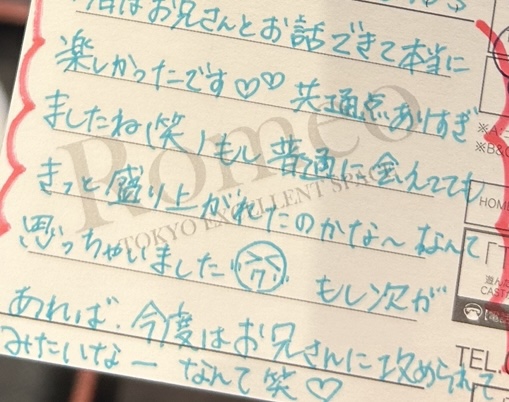 はお兄さんとお話できて本当に
楽しかったです♡♡ 共通点ありすぎ
ましたね(笑)もし普通に会えてても
きっと盛り上がれたのかな〜なんて
思っちゃいました もし次が
あれば、今度はお兄さんに攻められて
みたいなー なんて笑♡
Romeo
TOKYO EXCELLENT SPA
※A:
※B&C
HOME
「T
遊んだ
CAST
TEL.